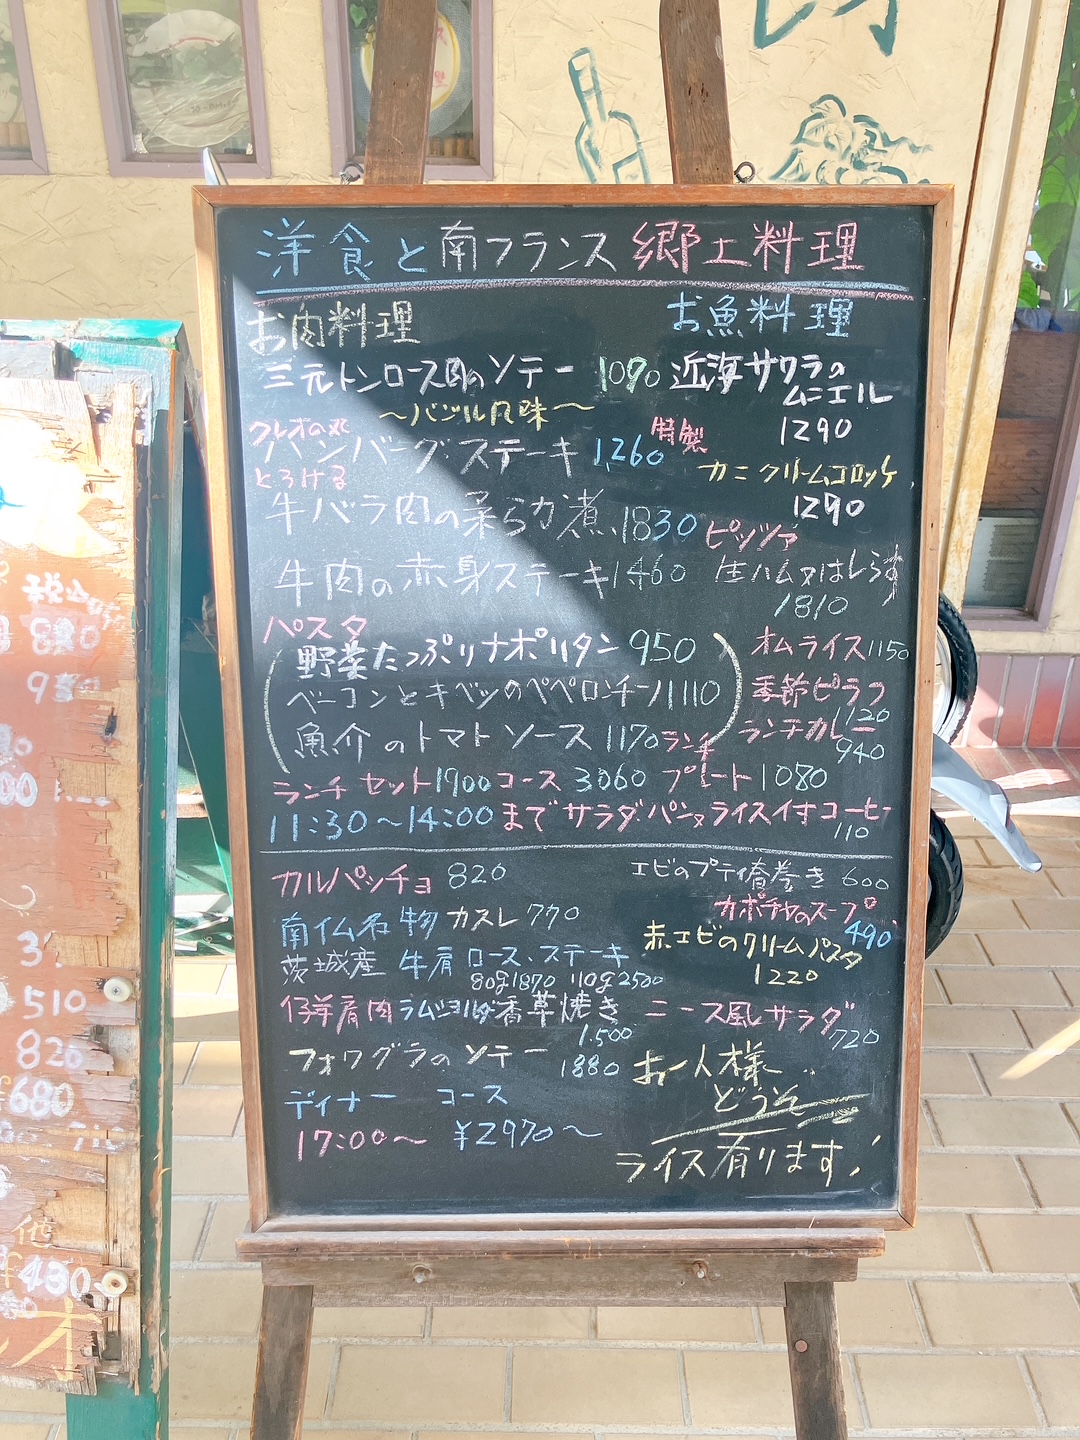 洋食と南フランス郷土料理
お肉料理
三元トンロース肉のソテー 1090
～バジル風味～
クレオの丸
ハンバーグステーキ 1,260
とろける
牛バラ肉の柔らか煮 1830
牛肉の赤身ステーキ 1460
お魚料理
近海サワラの
ムニエル
1290
特製
カニクリームコロッケ
1290
ピッツァ
生ハム又はしらす
1810
パスタ
野菜たっぷりナポリタン 950
ベーコンとキャベツのペペロンチーノ 1110
魚介のトマトソース 1170
オムライス 1150
季節ピラフ
1120
ランチカレー
940
ランチセット 1900 コース 3060 ランチプレート 1080
11:30～14:00 まで サラダパン又ライス付 コーヒー
110
カルパッチョ 820
南仏名物 カスレ 770
茨城産 牛肩ロース、ステーキ
80g1870 110g2500
仔羊肩肉ラムショルダー香草焼き
1,500
フォワグラのソテー 1880
ディナー コース
17:00～ ¥2970～
エビのプティ春巻き 600
カボチャのスープ
490
赤エビのクリームパスタ
1220
ニース風サラダ
720
お一人様
どうぞ
ライス有ります!
税込
880
510
820
¥680
他
¥430